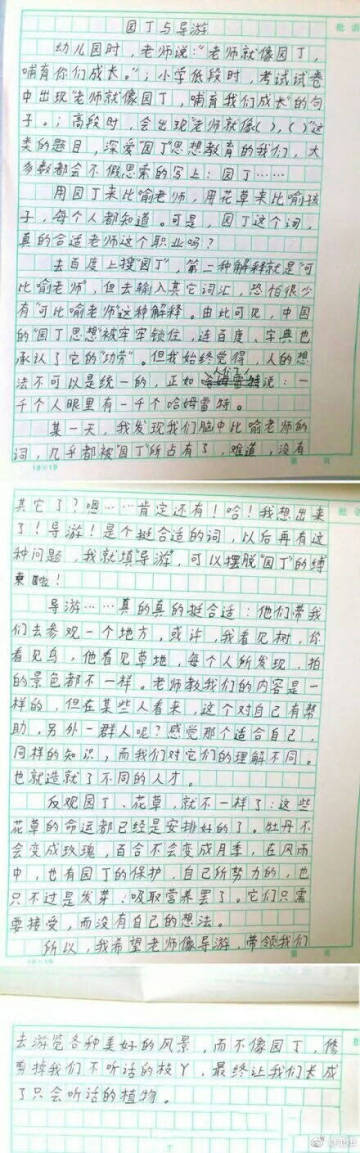 园丁与导游
幼儿园时，老师说：“老师就像园丁，
哺育你们成长。”；小学低段时，考试试卷
中出现“老师就像园丁，哺育我们成长”的句
子。；高段时，会出现“老师就像( )，( )”这
类的题目，深爱“园丁”思想教育的我们，大
多数都会不假思索的写上：园丁……
用园丁来比喻老师，用花草来比喻孩
子，每个人都知道。可是，园丁这个词，
真的合适老师这个职业吗？
去百度上搜“园丁”，第二种解释就是“可
比喻老师”，但去输入其它词汇，恐怕很少
有“可比喻老师”这种解释。由此可见，中国
的“园丁思想”被牢牢锁住，连百度、字典也
承认了它的“功劳”。但我始终觉得，人的想
法不可以是统一的，正如 说：一
千个人眼里有一千个哈姆雷特。
某一天，我发现我们脑中比喻老师的
词，几乎都被“园丁”所占有了，难道，没有
其它了？嗯……肯定还有！哈！我想出来
了！导游！是个挺合适的词，以后再有这
种问题，我就填导游，可以摆脱“园丁”的缚
束啦！
导游……真的真的挺合适：他们带我
们去参观一个地方，或许，我看见树，你
看见鸟，他看见草地，每个人所发现，拍
的景色都不一样。老师教我们的内容是一
样的，但在某些人看来，这个对自己有帮
助，另外一群人呢？感觉那个适合自己，
同样的知识，而我们对它们的理解不同。
也就造就了不同的人才。
反观园丁、花草，就不一样了：这些
花草的命运都已经是安排好的了。牡丹不
会变成玫瑰，百合不会变成月季，在风雨
中，也有园丁的保护，自己所努力的，也
只不过是发芽、吸取营养罢了。它们只需
要接受，而没有自己的想法。
所以，我希望老师像导游，带领我们
去游览各种美好的风景，而不像园丁，修
剪掉我们不听话的枝丫，最终让我们长成
了只会听话的植物。